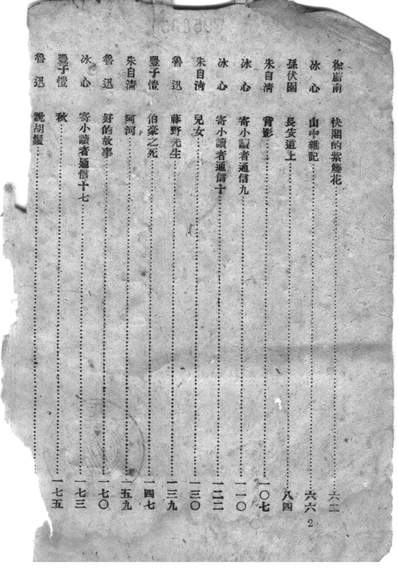 徐蔚南 快閣的紫藤花……六二
冰心 山中雜記……六六
孫伏園 長安道上……八四
朱自清 背影……一〇七
冰心 寄小讀者通信九……一一〇
冰心 寄小讀者通信十……一二二
朱自清 兒女……一三〇
魯迅 藤野先生……一三九
豐子愷 伯豪之死……一四七
朱自清 阿河……一五九
魯迅 好的故事……一七〇
冰心 寄小讀者通信十七……一七三
豐子愷 秋……一七五
魯迅 說胡鬚……
2